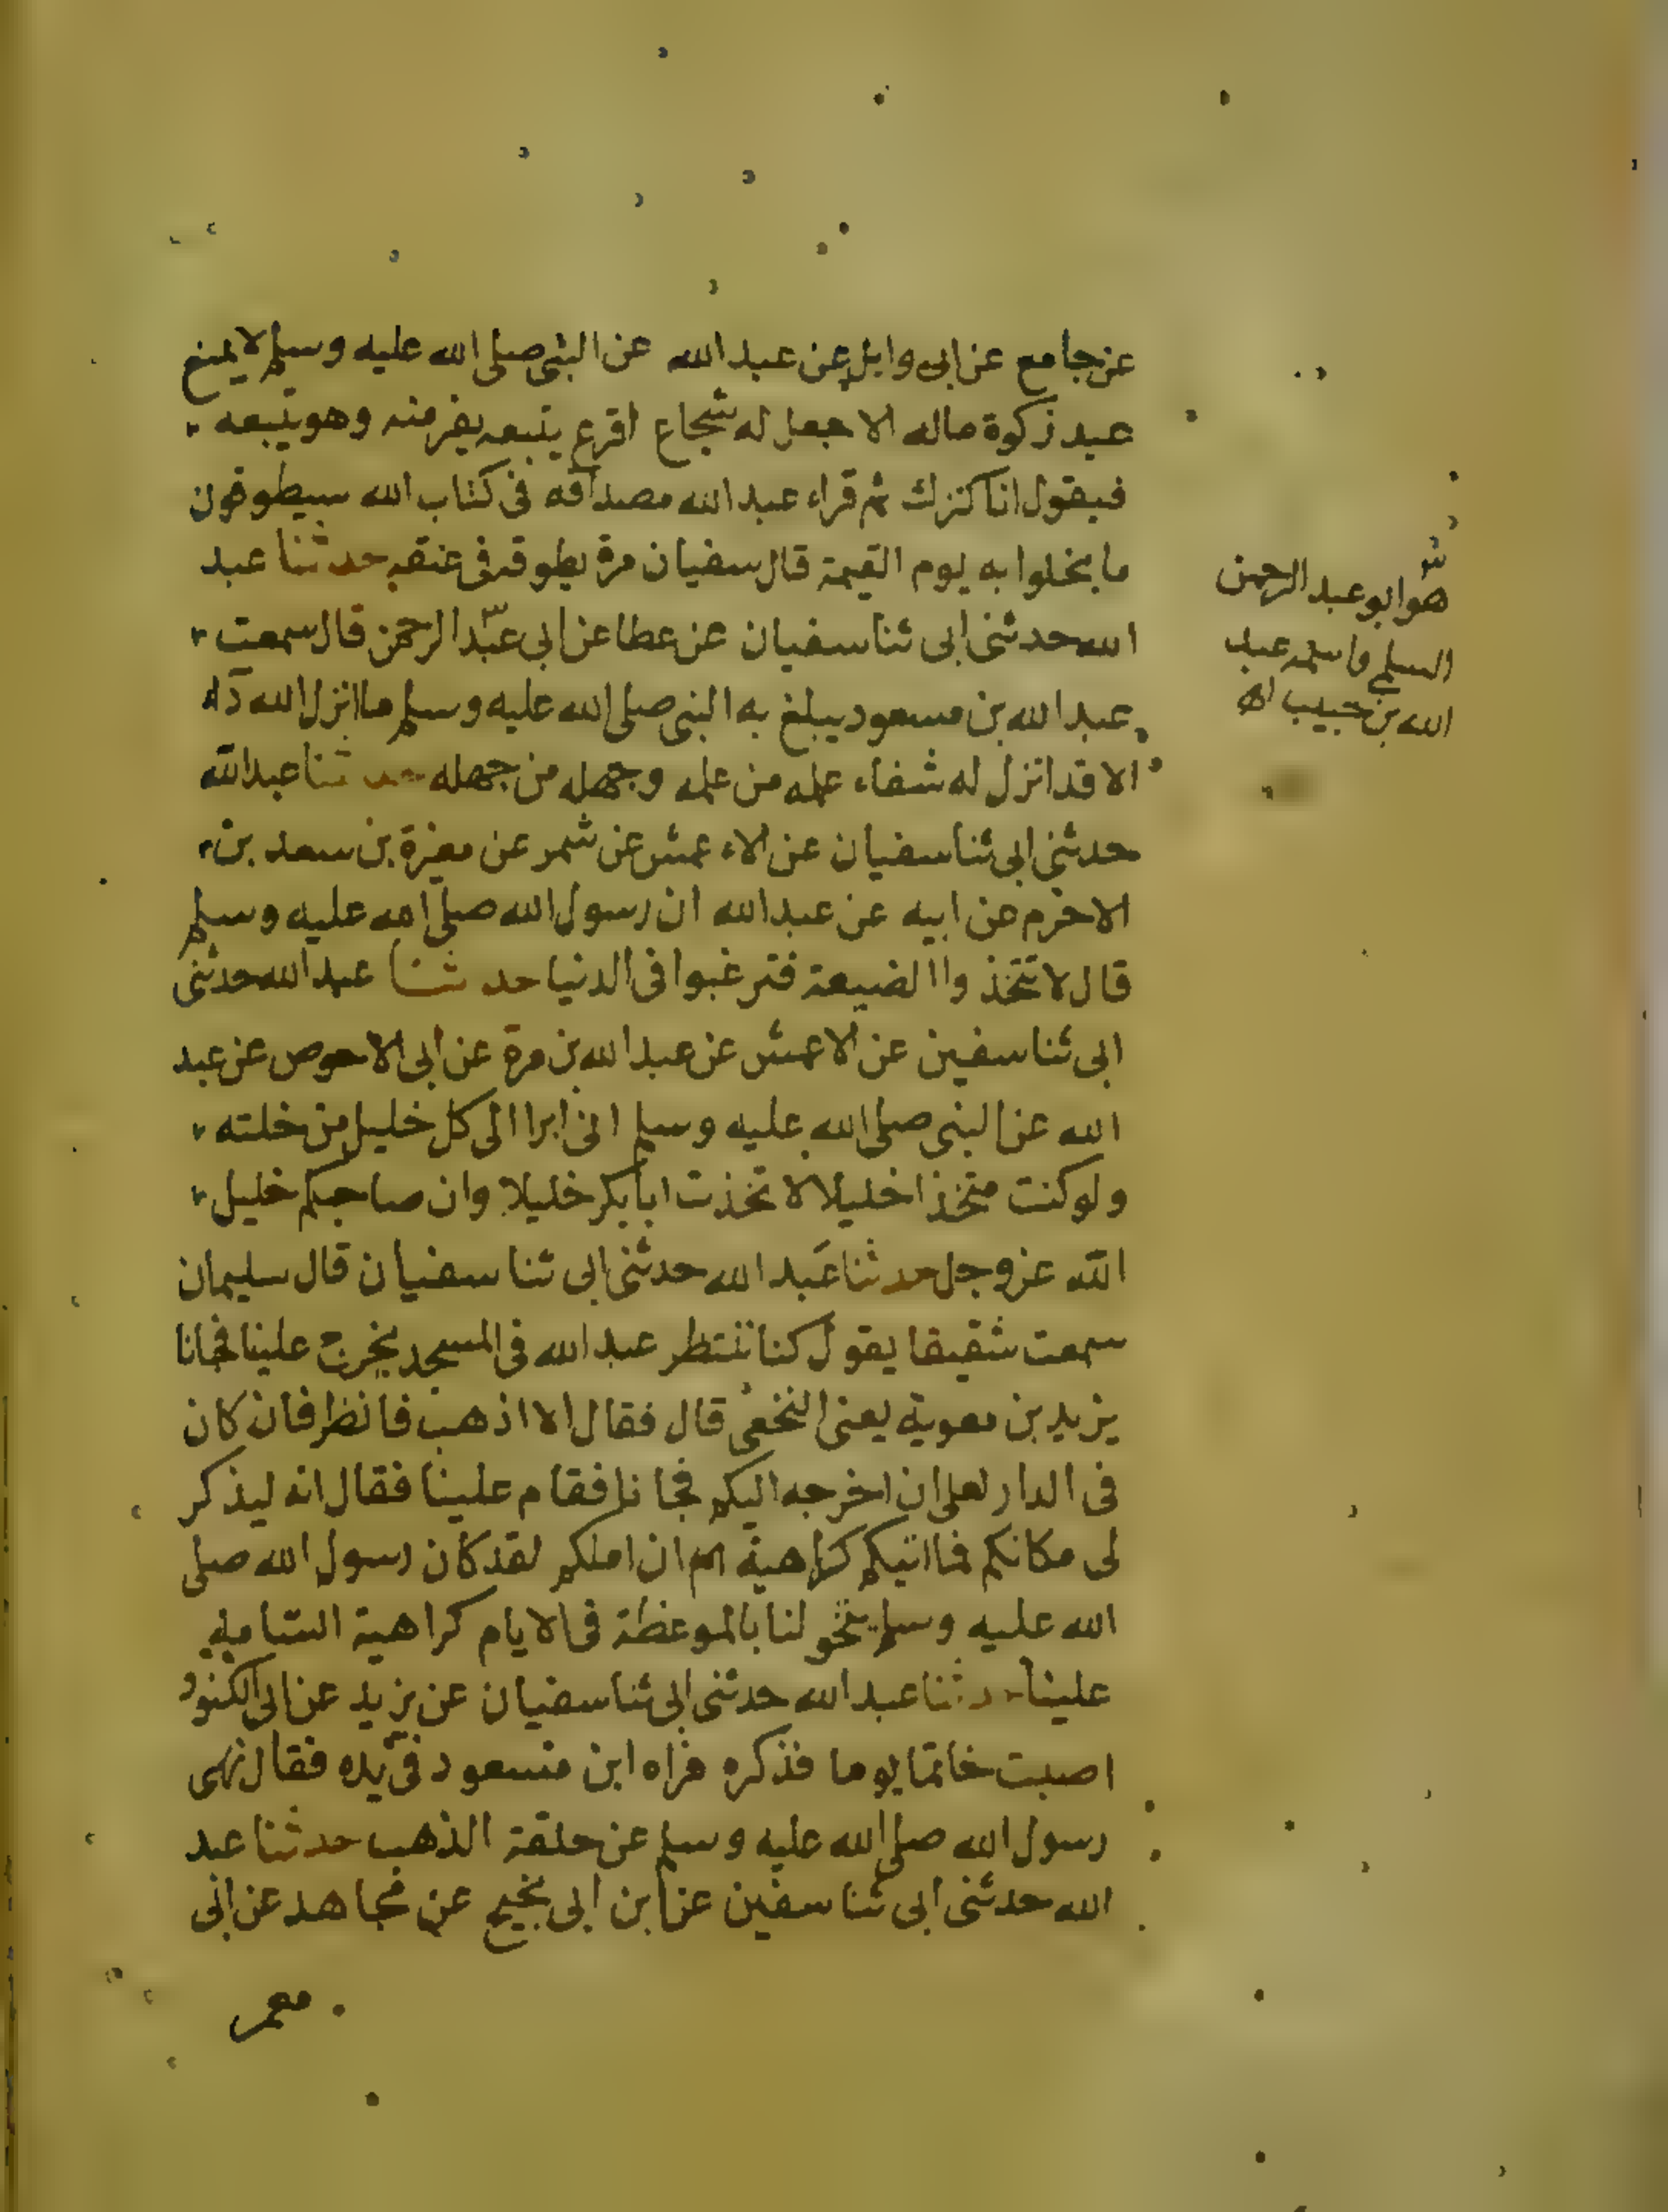 عن جامع عن ابى وايل عن عبد الله عن النبى صلى الله عليه وسلم لا يمنع
عبد زكوة ماله الا جعل له شجاع اقرع يتبعه يفر منه وهو يتبعه
فيقول انا كنزك ثم قراء عبد الله مصداقه فى كتاب الله سيطوقون
ما بخلوا به يوم القيمة قال سفيان مرة يطوقه فى عنقه حدثنا عبد
الله حدثنى ابى ثنا سفيان عن عطا عن ابى عبد الرحمن قال سمعت
عبد الله بن مسعود يبلغ به النبى صلى الله عليه وسلم ما انزل الله داء
الا قد انزل له شفاء علمه من علمه وجهله من جهله حدثنا عبد الله
حدثنى ابى ثنا سفيان عن الاعمش عن شمر عن مغيرة بن سعد بن
الاخرم عن ابيه عن عبد الله ان رسول الله صلى الله عليه وسلم
قال لا تتخذوا الضيعة فترغبوا فى الدنيا حدثنا عبد الله حدثنى
ابى ثنا سفين عن الاعمش عن عبد الله بن مرة عن ابى الاحوص عن عبد
الله عن النبى صلى الله عليه وسلم انى ابرا الى كل خليل من خلته
ولو كنت متخذا خليلا لاتخذت ابا بكر خليلا وان صاحبكم خليل
الله عز وجل حدثنا عبد الله حدثنى ابى ثنا سفيان قال سليمان
سمعت شقيقا يقول كنا ننتظر عبد الله فى المسجد يخرج علينا فجانا
يزيد بن معوية يعنى النخعى قال فقال الا اذهب فانظر فان كان
فى الدار لعلى ان اخرجه اليكم فجانا فقام علينا فقال انه ليذكر
لى مكانكم فما اتيكم كراهية ان املكم لقد كان رسول الله صلى
الله عليه وسلم يتخولنا بالموعظة فى الايام كراهية السامة
علينا حدثنا عبد الله حدثنى ابى ثنا سفيان عن يزيد عن ابى الكنود
اصبت خاتما يوما فذكره فراه ابن مسعود فى يده فقال نهى
رسول الله صلى الله عليه وسلم عن حلقة الذهب حدثنا عبد
الله حدثنى ابى ثنا سفين عن ابن ابى نجيح عن مجاهد عن ابى
معمر
هو ابو عبد الرحمن
السلمى واسمه عبد
الله بن حبيب اه